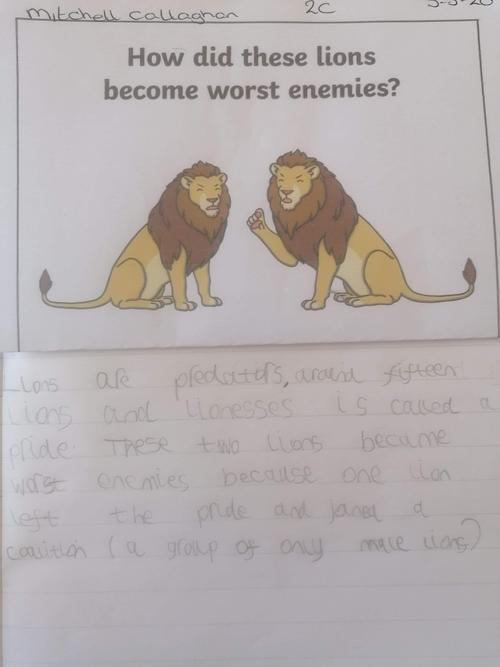 Mitchell Callaghan 2C
How did these lions
become worst enemies?
Lions are predators, around fifteen
Lions and Lionesses is called a
pride. These two Lions became
worst enemies because one Lion
left the pride and joined a
coalition (a group of only male Lions)